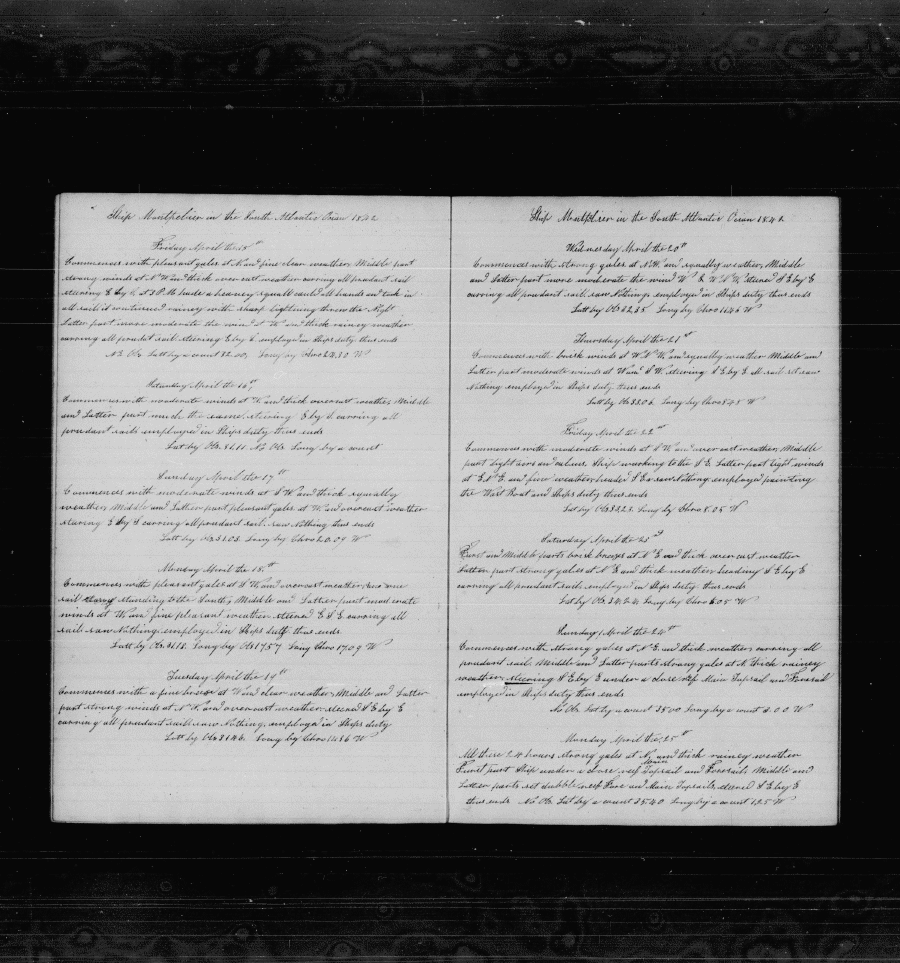 Ship Montpelier in the South Atlantic Ocian 1842
Friday April the 15th
Commences with pleasant gales at N and fine clear weather Middle part
strong winds at N W and thick overcast weather carring all prudant sail
stearing E by S at 3 P.M. made a heavey squall called all hands and tuck in
all sail it continued rainey with sharp lightning threw the Night
Latter part more moderate the wind at W and thick rainey weather
carring all prudant sail stearing E by S employed in Ships duty thus ends
No Ob Latt by a count 32.00 Long by Chro 23.30 W
Saturday April the 16th
Commences with moderate winds at W and thick overcast weather Middle
and Latter part much the same stearing E by S carring all
prudant sails employed in Ships duty thus ends
Latt by Ob 31.11 No Ob Long by a count
Sunday April the 17th
Commences with moderate winds at S W and thick squally
weather Middle and Latter part pleasant gales at W and overcast weather
stearing E by S carring all prudant sail saw Nothing thus ends
Latt by Ob 31.03 Long by Chro 20.09 W
Monday April the 18th
Commences with pleasant gales at S W and overcast weather saw one
sail standing to the South Middle and Latter part moderate
winds at W and fine pleasant weather steared E S E carring all
sail saw Nothing employed in Ships duty thus ends
Latt by Ob 31.18 Long by Ob 17.57 Long Chro 17.09 W
Tuesday April the 19th
Commences with a fine breeze at W and clear weather Middle and Latter
part strong winds at N W and overcast weather steared S E by E
carring all prudant sail saw Nothing employed in Ships duty
Latt by Ob 31.46 Long by Chro 14.56 W
Ship Montpelier in the South Atlantic Ocian 1842.
Wednesday April the 20th
Commences with strong gales at N W and squally weather Middle
and Latter part more moderate the wind W & W N W steared S E by E
carring all prudant sail saw Nothing employed in Ships duty thus ends
Latt by Ob 32.35 Long by Chro 11.46 W
Thursday April the 21st
Commences with brisk winds at W N W and squally weather Middle and
Latter part moderate winds at W and S W stearing S E by E all sail set saw
Nothing employed in Ships duty thus ends
Latt by Ob 33.06 Long by Chro 8.45 W
Friday April the 22nd
Commences with moderate winds at S W and overcast weather Middle
part light airs and calms Ship working to the S E Latter part light winds
at E N E and fine weather headed S E saw Nothing employed painting
the Wast Boat and Ships duty thus ends
Lat by Ob 33.28 Long by Chro 8.05 W
Saturday April the 23d
Furst and Middle parts brisk breezes at N E and thick overcast weather
Latter part strong gales at N E and thick weather heading S E by E
carring all prudant sail employed in Ships duty thus ends
Lat by Ob 34.24 Long by Chro 6.05 W
Sunday April the 24th
Commences with strong gales at N E and thick weather carring all
prudant sail Middle and Latter parts strong gales at N thick rainey
weather stearing S E by E under a close reef Main Topsail and Foresail
employed in Ships duty thus ends
No Ob Lat by a count 35.00 Long by a count 4.00 W
Monday April the 25th
All these 24 hours strong gales at N and thick rainey weather
Furst part Ship under a close reef Main Topsail and Foresail Middle and
Latter parts set dubble reef Fore and Main Topsails steared S E by E
thus ends No Ob Lat by a count 35.40 Long by a count 1.25 W